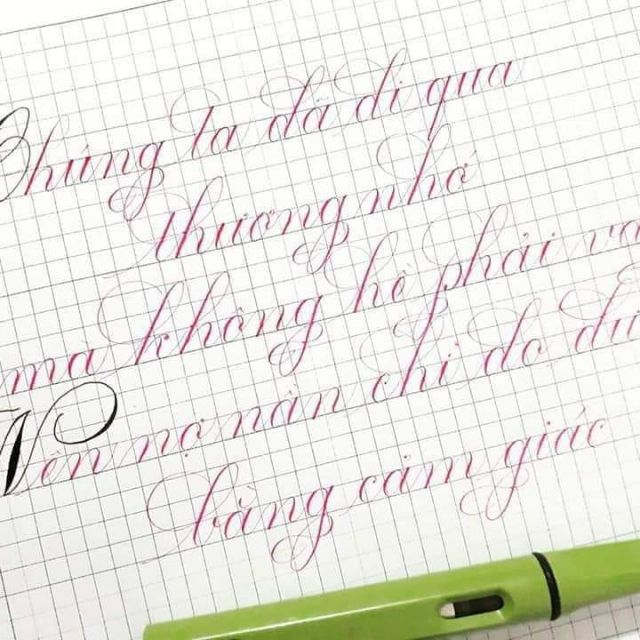 Chúng ta đã đi qua
thương nhớ
mà không hề phải va
Nên nợ nần chỉ đo đư
bằng cảm giác